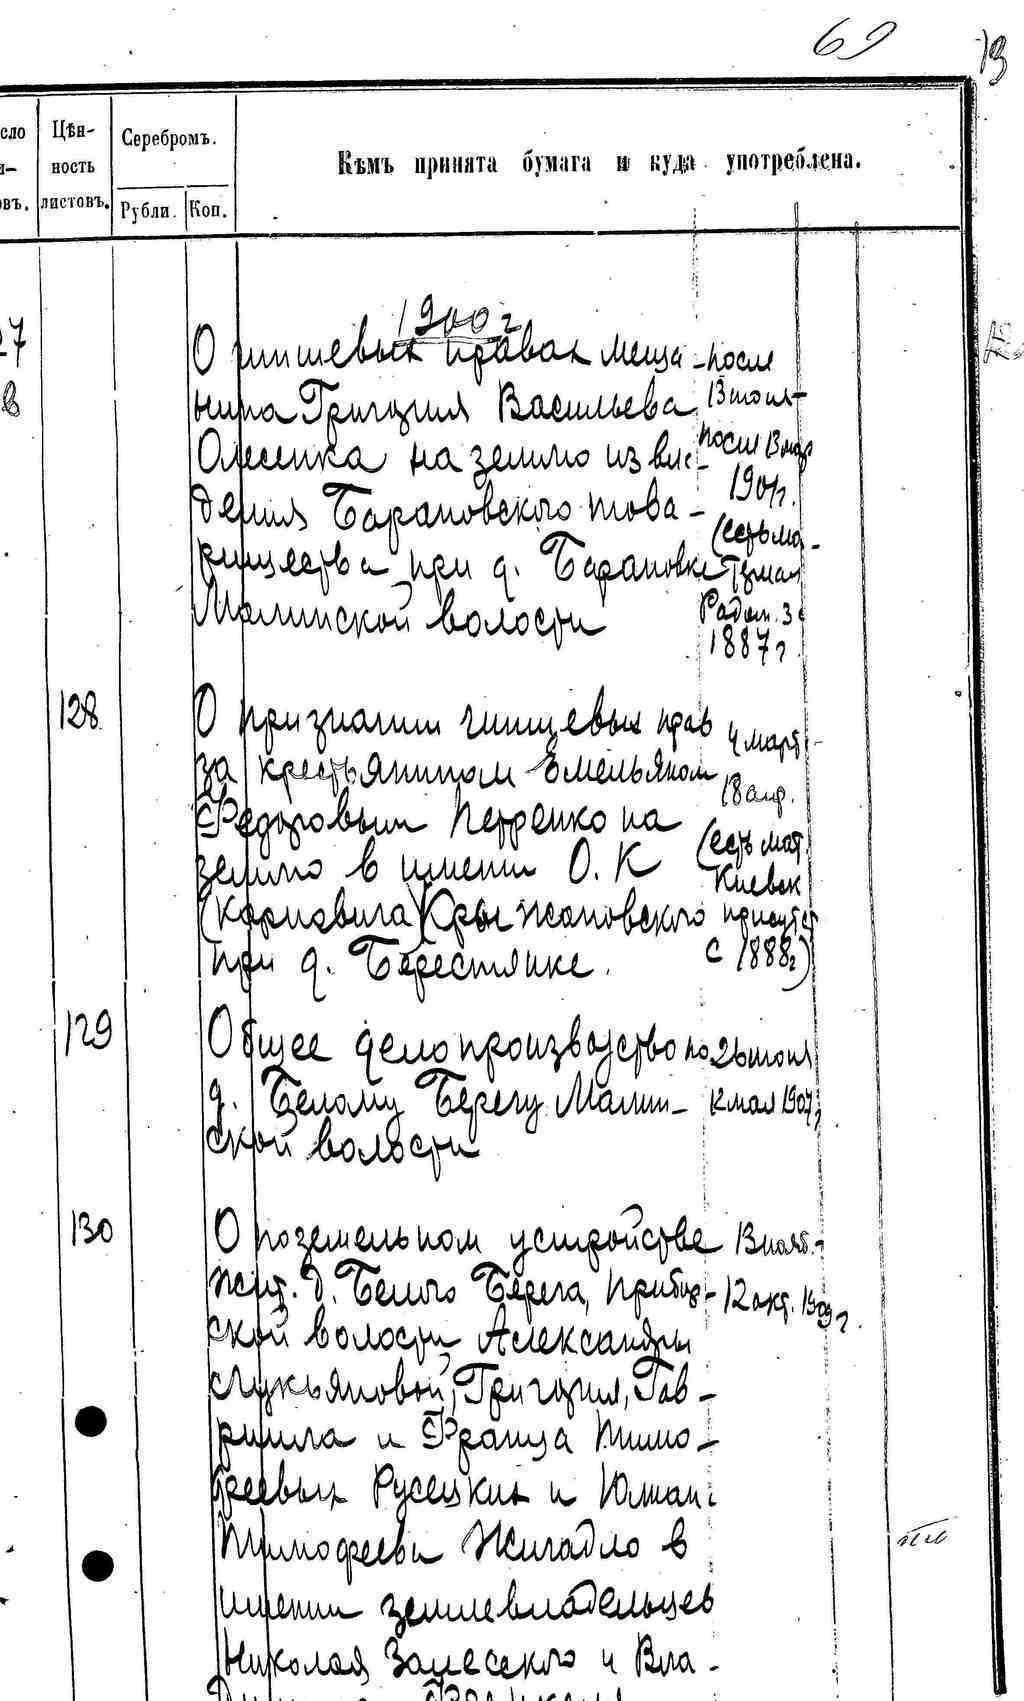 69
13
сло
и-
овъ.
Цѣн-
ность
листовъ.
Серебромъ.
Рубли.
Коп.
Кѣмъ принята бумага и куда употреблена.
1900 г
27
в
О чиншевых правах меща-
нина Григория Васильева
Олесенка на землю из вла-
дения Барановского това-
рищества при д. Барановке
Малинской волости
после
13 июля-
после 13 мар
1901г.
(есть ма-
териал
Радом. з
1887 г.
128
О признании чиншевых прав
за крестьянином Емельяном
Федоровым Петренко на
землю в имении О. К
(Карповича) Крыжановского
при д. Берестянке.
4 март-
18 апр.
(есть мат.
Киевск
присутст
с 1888г)
129
Общее делопроизводство по
д. Белому Берегу Малин-
ской волости
26 июля
к мая 1907г
130
О поземельном устройстве
жит. д. Белого Берега, Прибор-
ской волости Александры
Лукьяновой, Григория, Гав-
риила и Франца Тимо-
феевых Русецких и Юлиан
Тимофеева Жигадло в
имении землевладельцев
Николая Залесского и Вла-
13 нояб.-
12 окт. 1909 г.